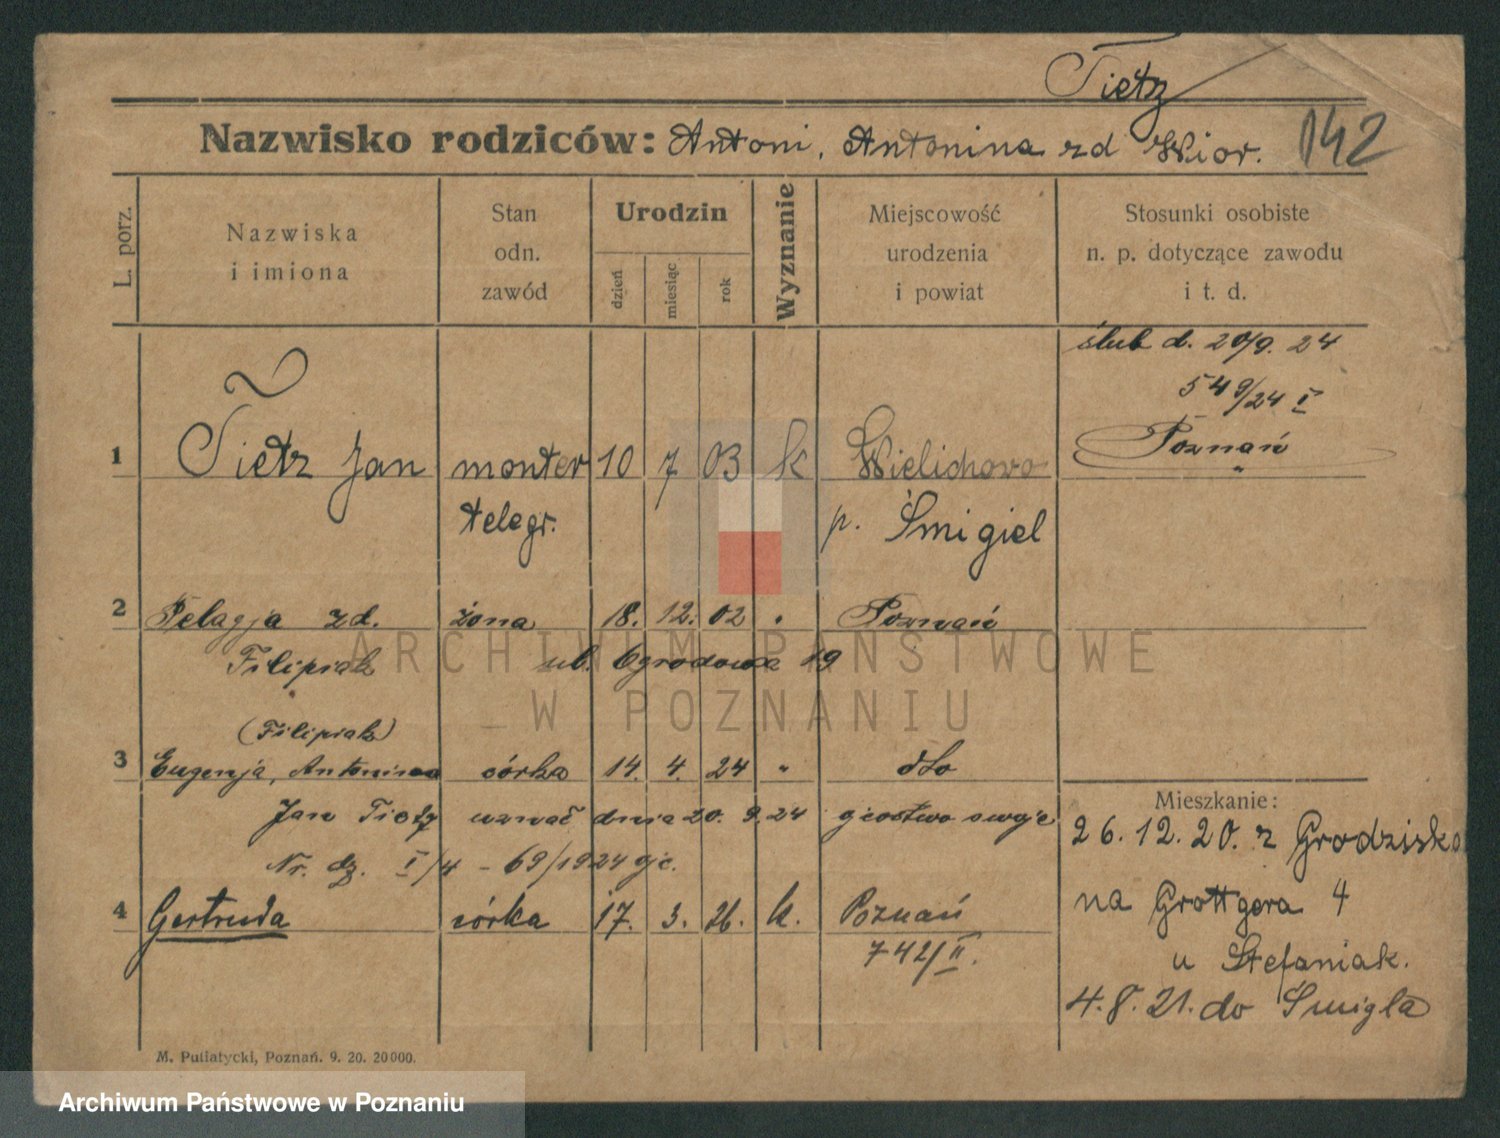 Tietz
Nazwisko rodziców: Antoni, Antonina zd Wior.
142
L. porz.
Nazwiska
i imiona
Stan
odn.
zawód
Urodzin
dzień
miesiąc
rok
Wyznanie
Miejscowość
urodzenia
i powiat
Stosunki osobiste
n. p. dotyczące zawodu
i t. d.
ślub d. 20/9. 24
549/24 I
Poznań
1 Tietz Jan monter 10 7 03 k Wielichowo
telegr. p. Śmigiel
2 Pelagja zd. żona 18. 12. 02 " Poznań
Filipiak ul. Ogrodowa 19
(Filipiak)
3 Eugenja, Antonina córka 14. 4. 24 " dto
Jan Tietz uznał dnia 20. 9. 24 ojcostwo swoje
Nr. dz. I/4 - 69/1924
4 Gertruda córka 17. 3. 26. k. Poznań
742/II.
Mieszkanie:
26. 12. 20. z Grodziska
na Grottgera 4
u Stefaniak.
4. 8. 21. do Śmigla
M. Putiatycki, Poznań. 9. 20. 20000.
ARCHIWUM PAŃSTWOWE
W POZNANIU
Archiwum Państwowe w Poznaniu